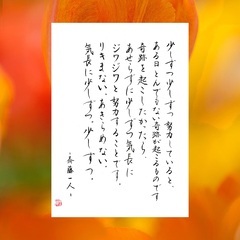 少しずつ少しずつ努力していると、
ある日とんでもない奇跡が起こるものです
奇跡を起こしたかったら、
あせらずに少しずつ気長に
ジワジワと努力することです。
りきまない、あきらめない、
気長に少しずつ、少しずつ。
斉藤一人